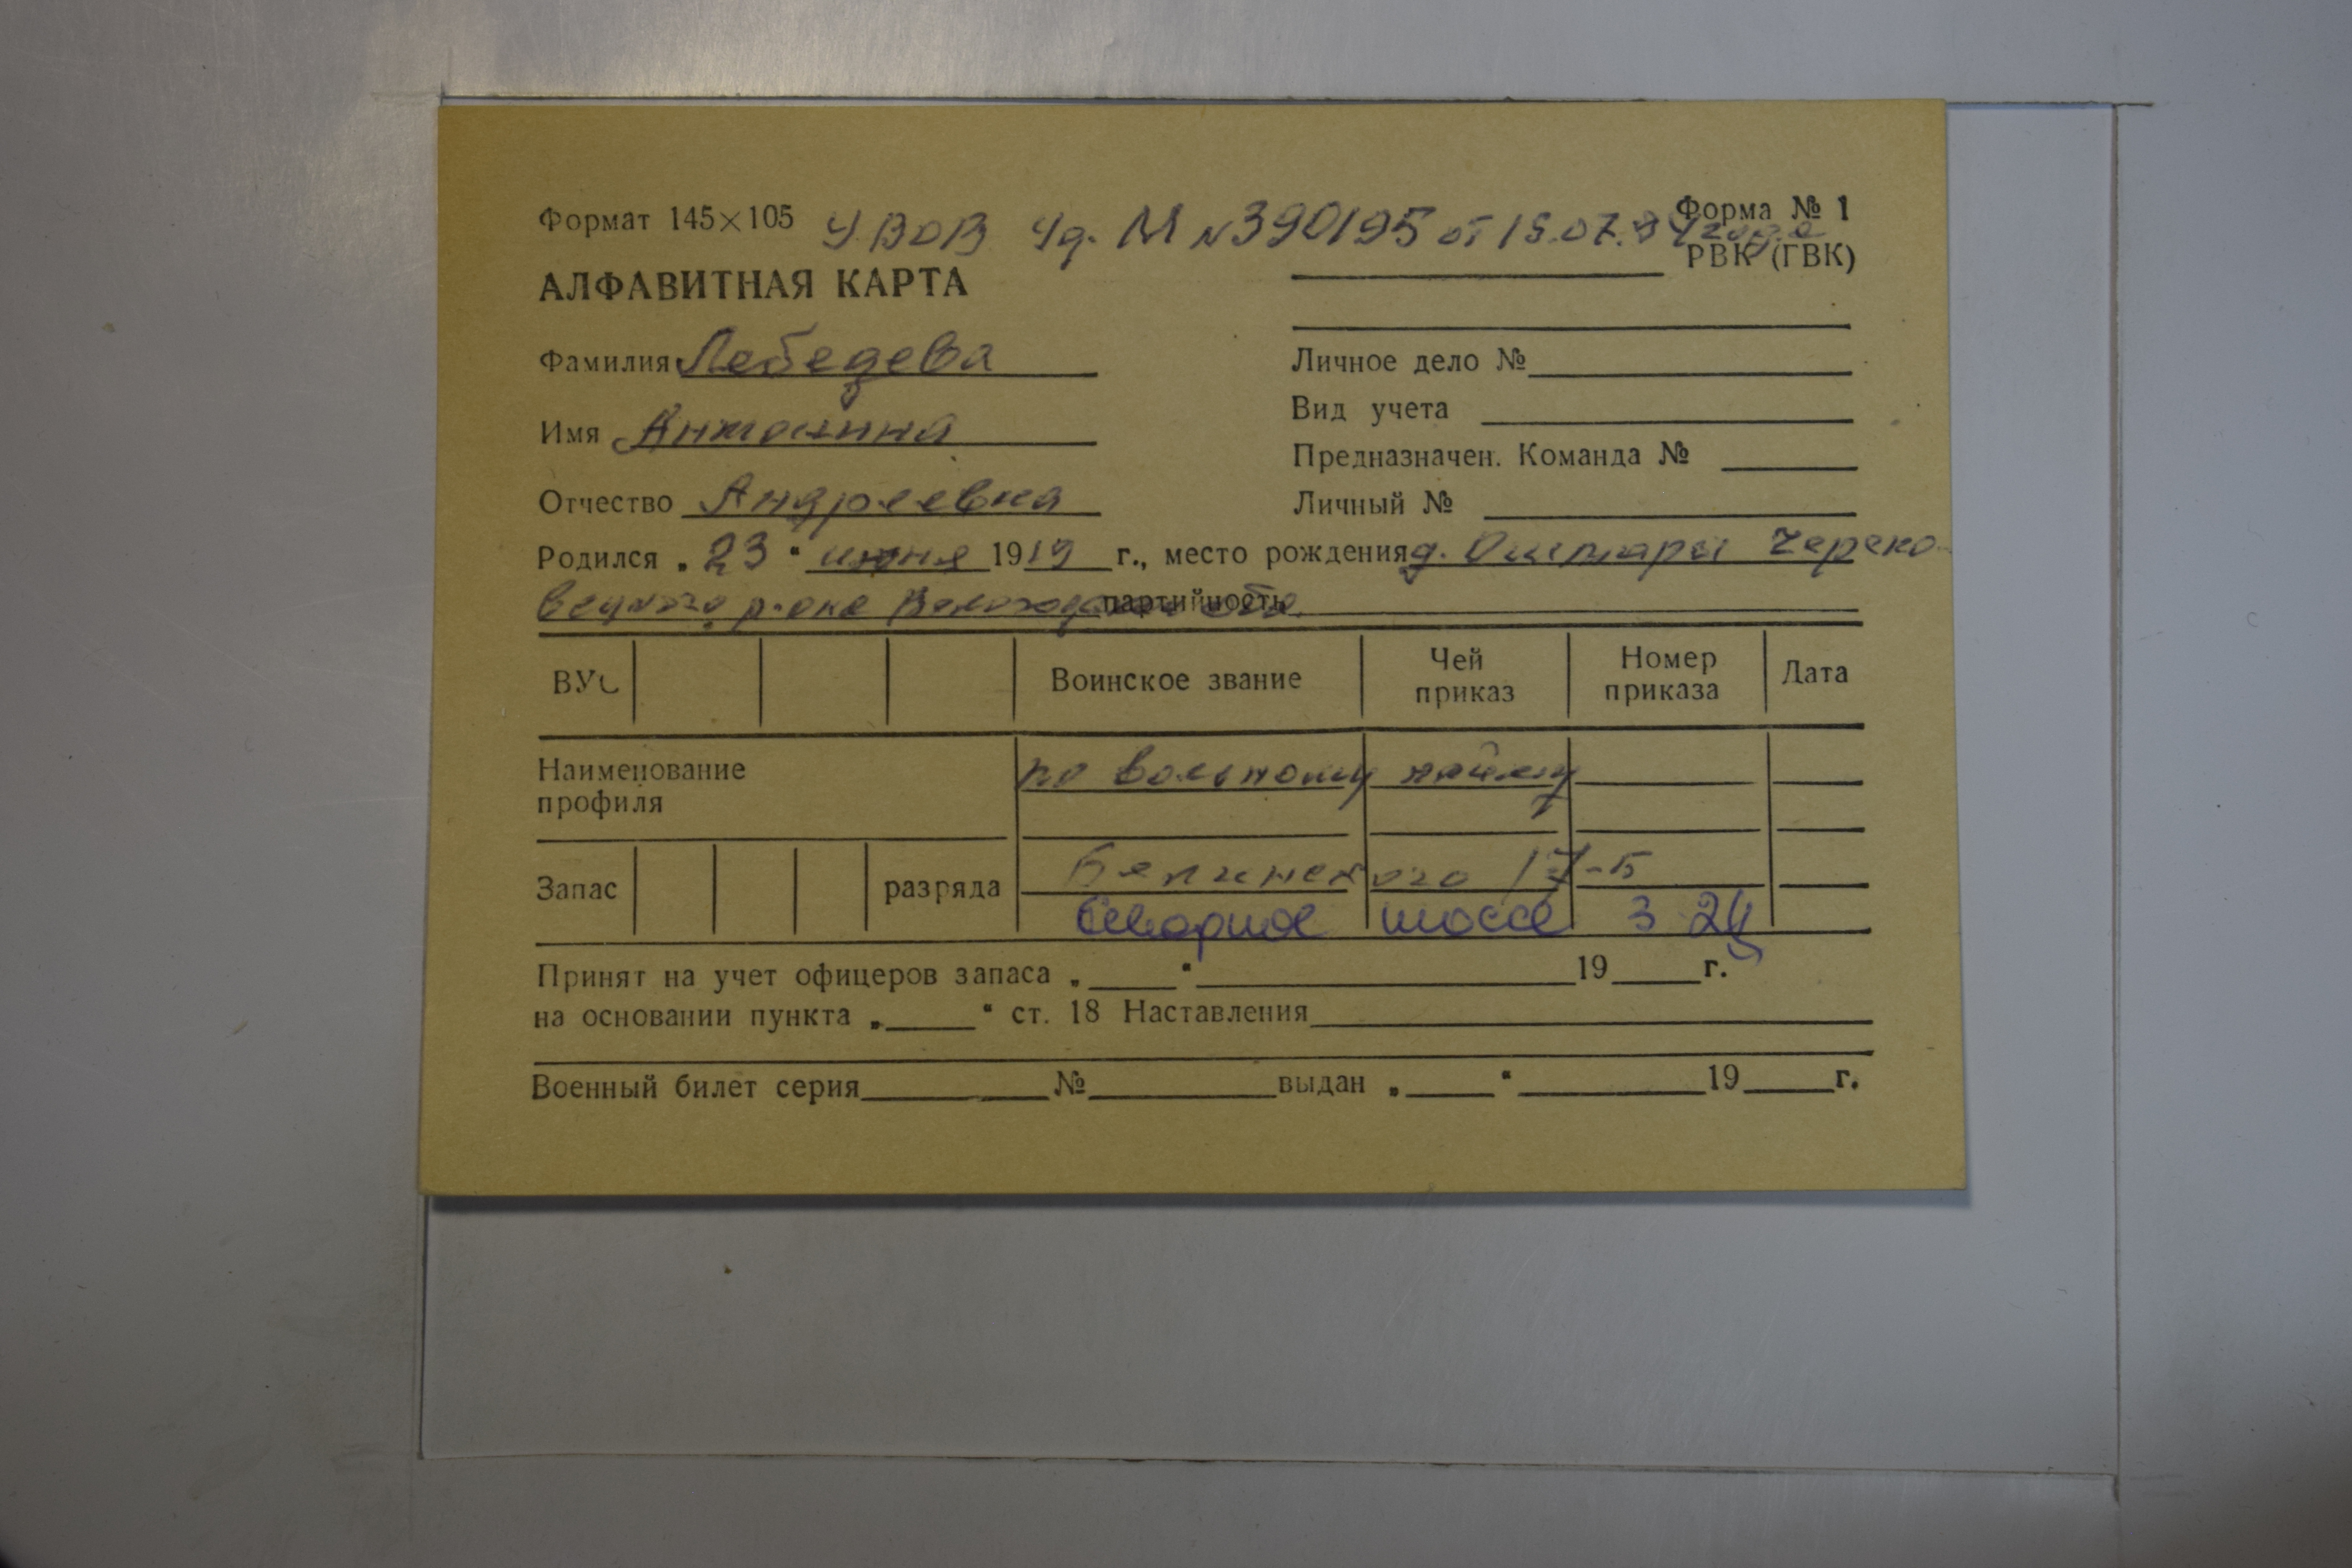 Формат 145×105 УВОВ Уд. М N390195 от 15.07.84 года Форма № 1
РВК (ГВК)
АЛФАВИТНАЯ КАРТА
Фамилия Лебедева
Имя Антонина
Отчество Андреевна
Личное дело №
Вид учета
Предназначен. Команда №
Личный №
Родился „23“ июня 1919 г., место рождения д. Череко-
вецкого р-она Вологодской обл. партийность
ВУС Воинское звание Чей приказ Номер приказа Дата
Наименование профиля по вольному найму
Запас разряда Белинского 17-Б
шоссе 3 24
Принят на учет офицеров запаса „ “ 19 г.
на основании пункта „ “ ст. 18 Наставления
Военный билет серия № выдан „ “ 19 г.